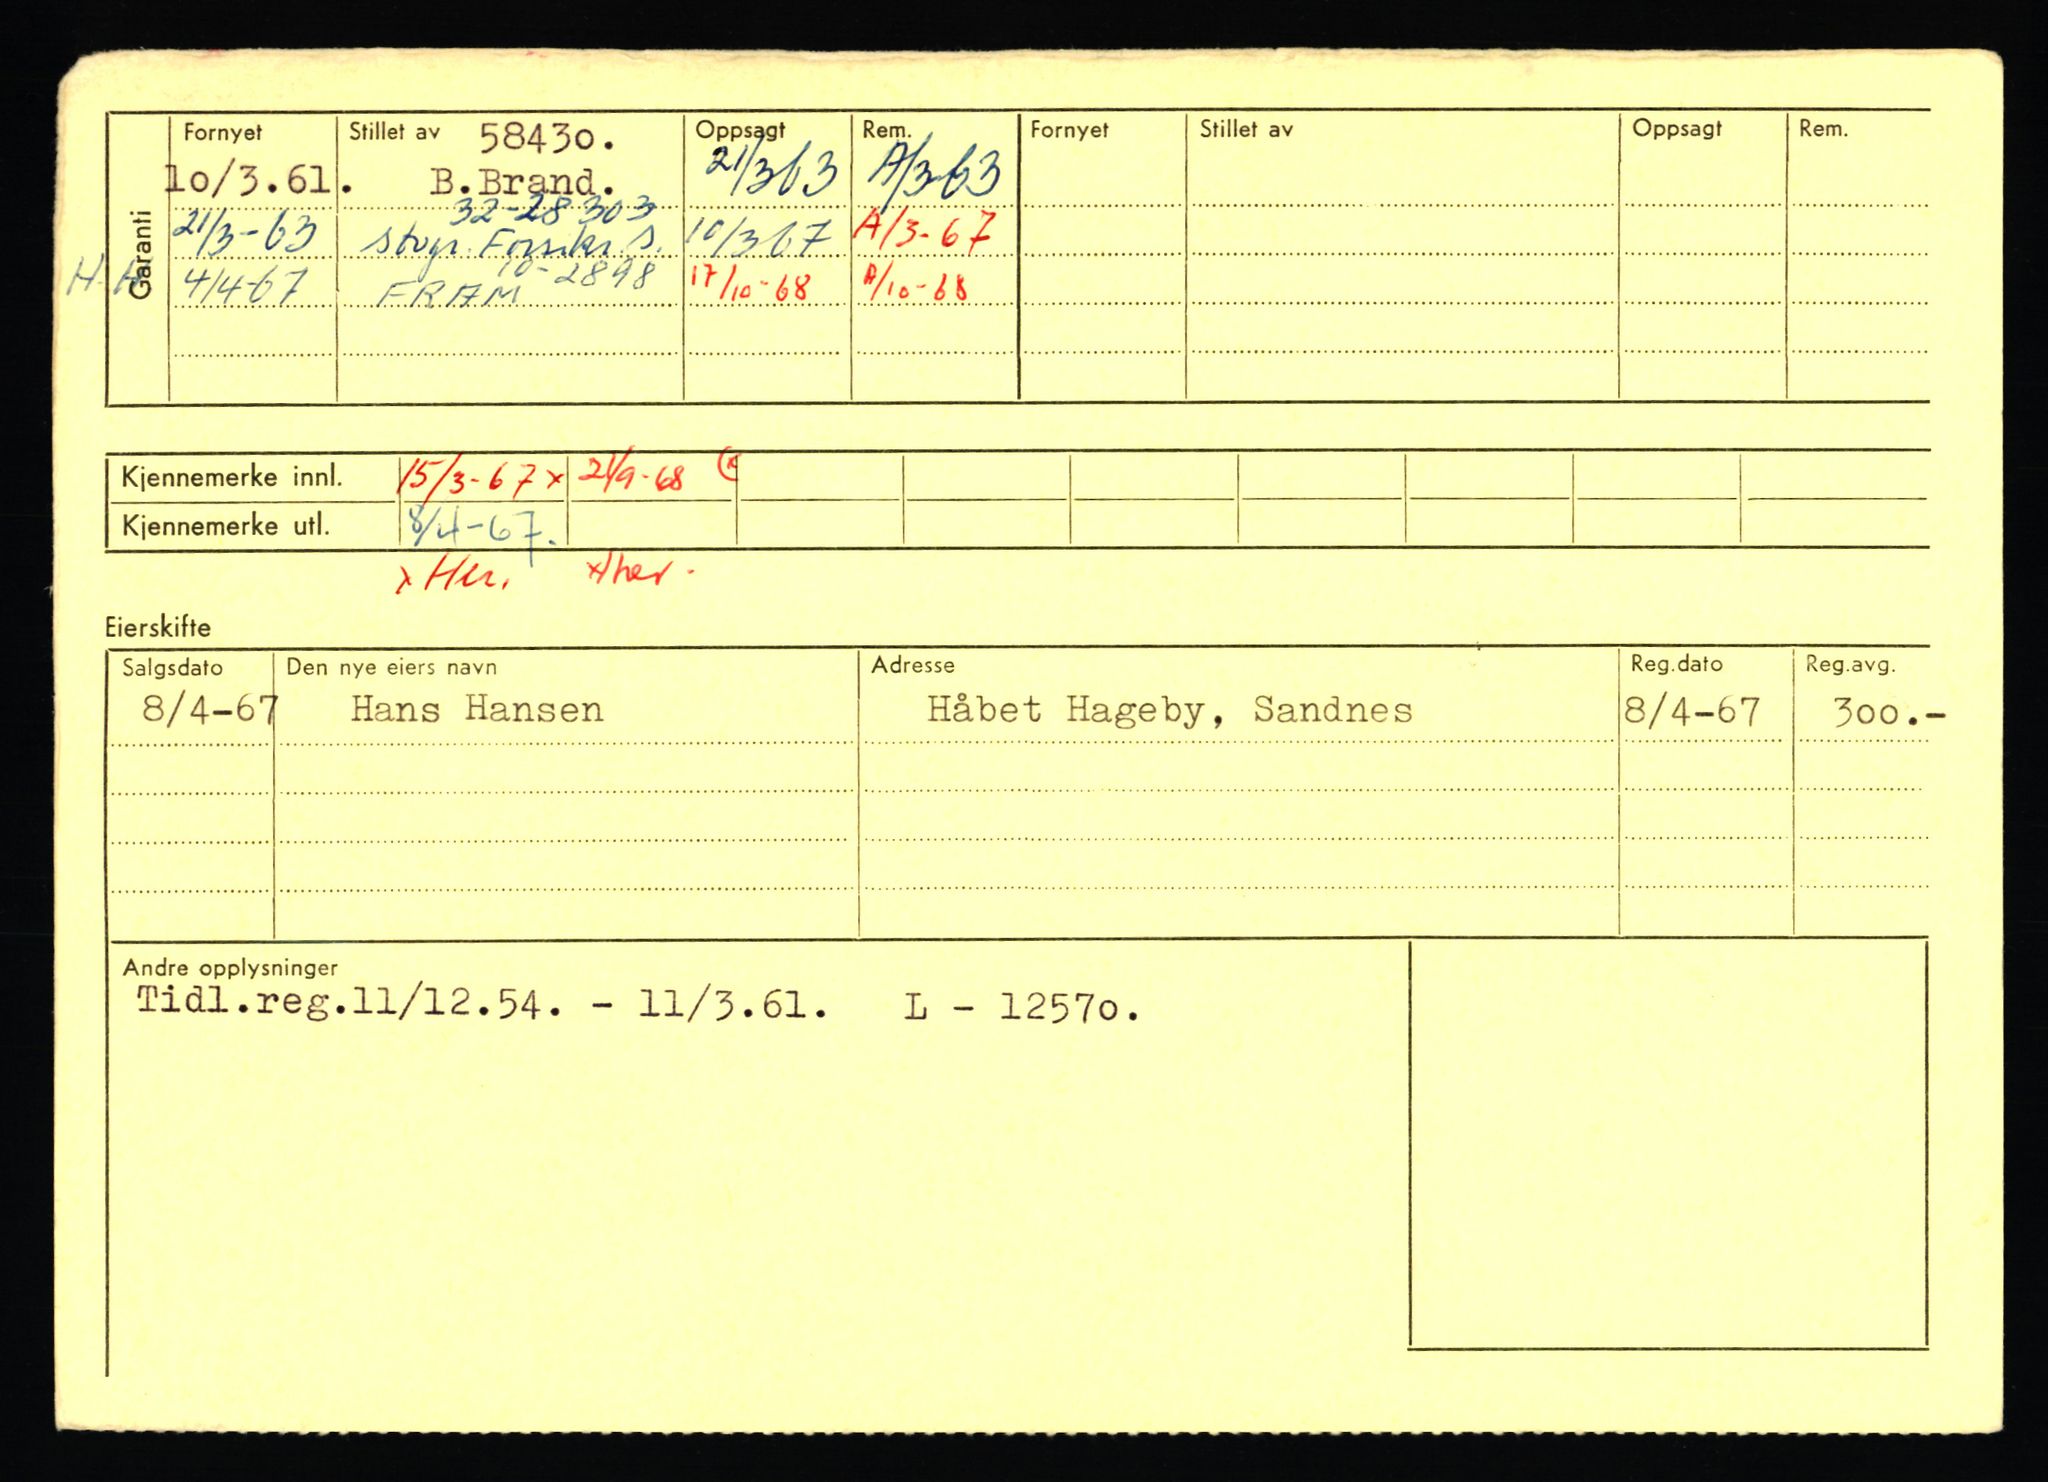 Garanti
Fornyet Stillet av 58430. Oppsagt Rem. Fornyet Stillet av Oppsagt Rem.
lo/3.61. B.Brand. 21/3 63 A/3-63
32-28 303
21/3-63 Forsikr. S. 10/3 67 A/3-67
10-2898
H. H. 4/4-67 FRAM 17/10-68 A/10-68
Kjennemerke innl. 15/3-67 x 21/9-68
Kjennemerke utl. 8/4-67.
x Her. x her.
Eierskifte
Salgsdato Den nye eiers navn Adresse Reg.dato Reg.avg.
8/4-67 Hans Hansen Håbet Hageby, Sandnes 8/4-67 300.-
Andre opplysninger
Tidl.reg.11/12.54. - 11/3.61. L - 12570.